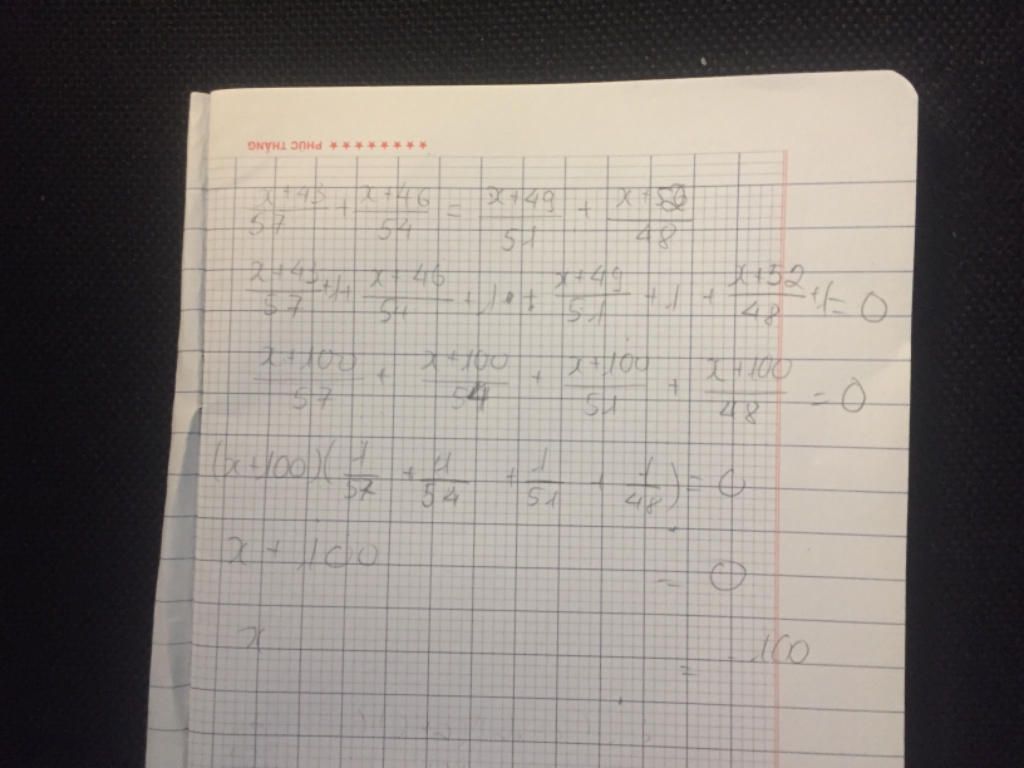 PHÚC THẮNG ★★★★★★★★★
x+43/57 + x+46/54 = x+49/51 + x+52/48
x+43/57 +1+ x+46/54 +1 + x+49/51 +1 + x+52/48 +1 = 0
x+100/57 + x+100/54 + x+100/51 + x+100/48 = 0
(x+100)(1/57 + 1/54 + 1/51 + 1/48) = 0
x + 100 = 0
x = -100